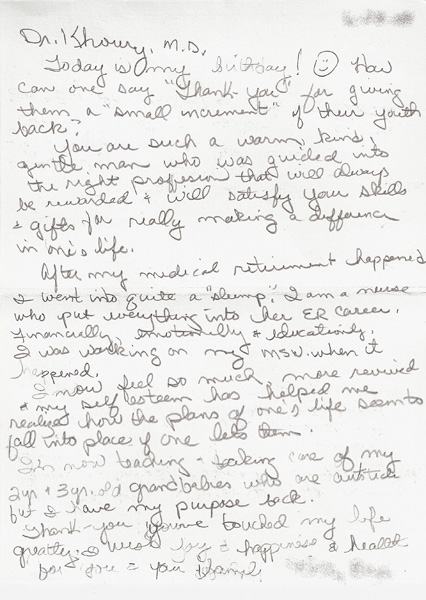 Dr. Khoury, M.D.
Today is my birthday! How
can one say "Thank-you" for giving
them a "small increment" of their youth
back?
You are such a warm, kind,
gentle man who was guided into
the right profession that will always
be rewarded & will satisfy your skills
& gifts for really making a difference
in one's life.
After my medical retirement happened
I went into quite a "slump". I am a nurse
who put everything into her ER career.
Financially, emotionally & educationly.
I was working on my MSN when it
happened.
I now feel so much more revived
& my self esteem has helped me
realize how the plans of one's life seem to
fall into place if one lets them.
I'm now teaching & taking care of my
2yr & 3yr. old grandbabies who are autistic
but I have my purpose back.
Thank-you you've touched my life
greatly. I wish joy & happiness & health
for you & your family.